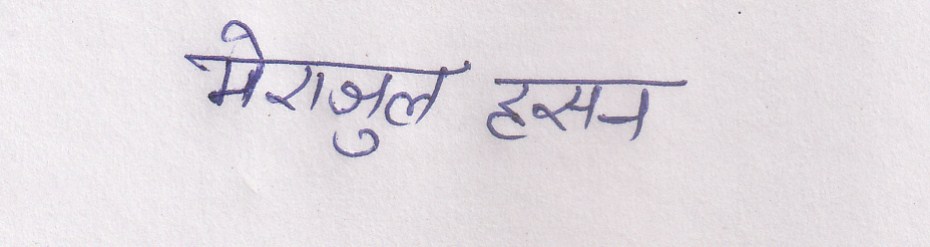 मेराजुल हसन